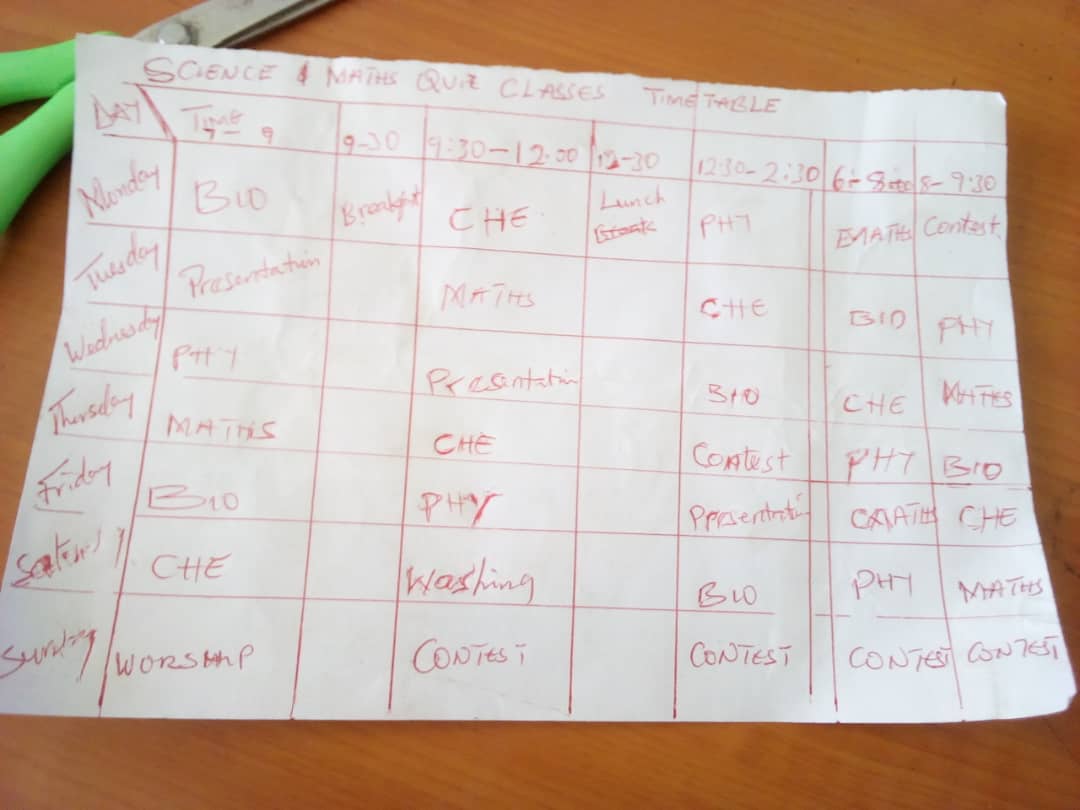 SCIENCE & MATHS QUIZ CLASSES TIME TABLE
DAY Time 7-9 9-30 9:30-12.00 12-30 12:30-2:30 6-8 8-9:30
Monday BIO Breakfast CHE Lunch PHY EMATHS Contest
Tuesday Presentation MATHS CHE BIO PHY
Wednesday PHY Presentation BIO CHE MATHS
Thursday MATHS CHE Contest PHY BIO
Friday BIO PHY Presentation CHE
CHE Washing BIO PHY MATHS
Sunday WORSHIP CONTEST CONTEST CONTEST CONTEST